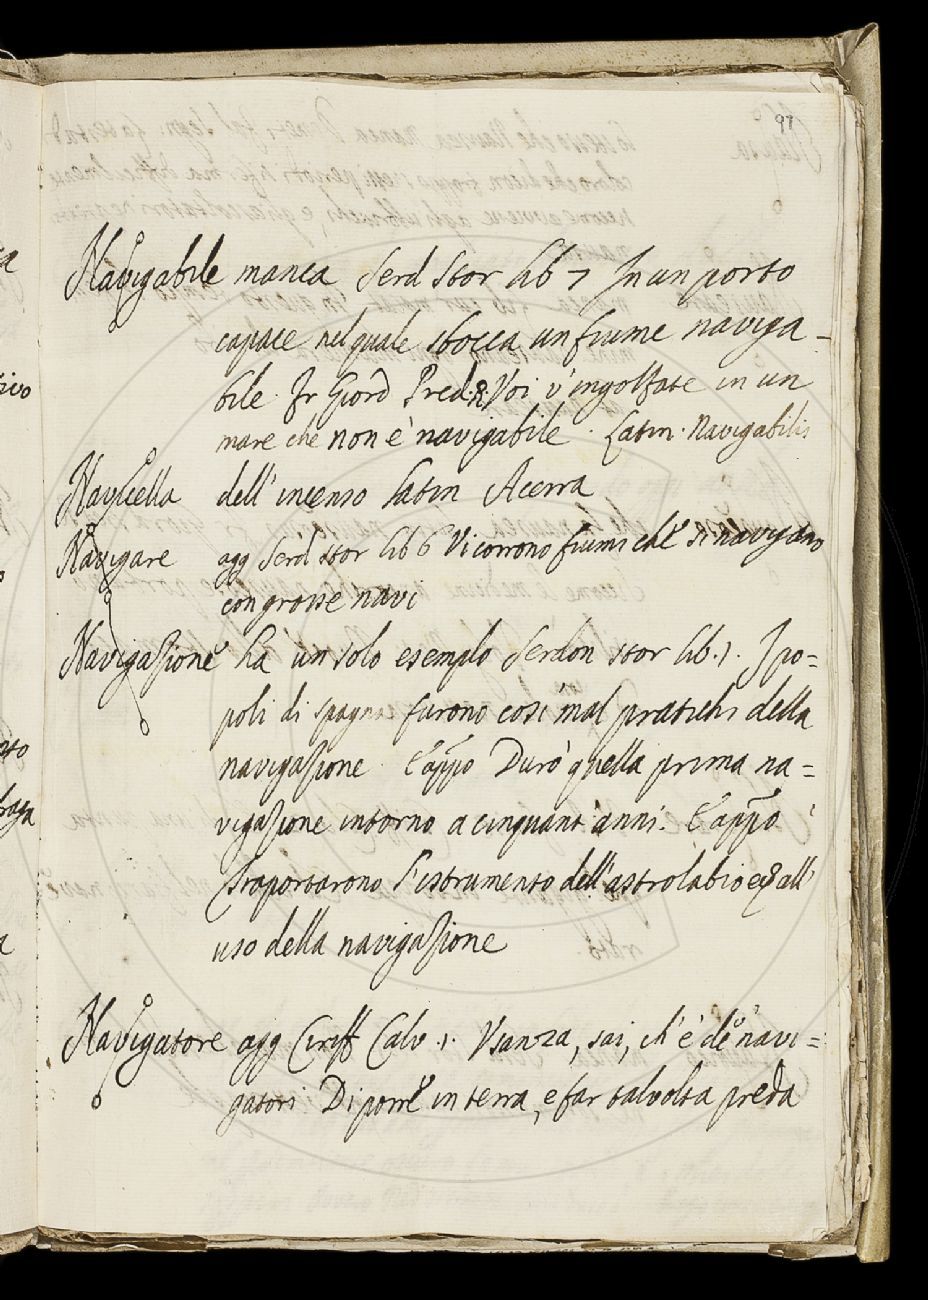 97
Navigabile manca Serd Stor lib 7 In un porto
capace nel quale sbocca un fiume naviga-
bile. Fr Giord Pred. R. Voi v'ingolfate in un
mare che non è navigabile. Latin. Navigabilis
Navicella dell'incenso latin Acerra
Navigare agg Serd stor lib 6 Vi corrono fiumi che si navigano
con grosse navi
Navigazione ha un solo esempio Serdon stor lib. 1. I po=
poli di Spagna furono così mal pratichi della
navigazione. E appo Durò quella prima na=
vigazione intorno a cinquant'anni. E appo
traportarono l'istrumento dell'astrolabio all'
uso della navigazione
Navigatore agg Ciriff Calv. 1. Usanza, sai, ch'è de' navi=
gatori Di porre in terra, e far talvolta preda